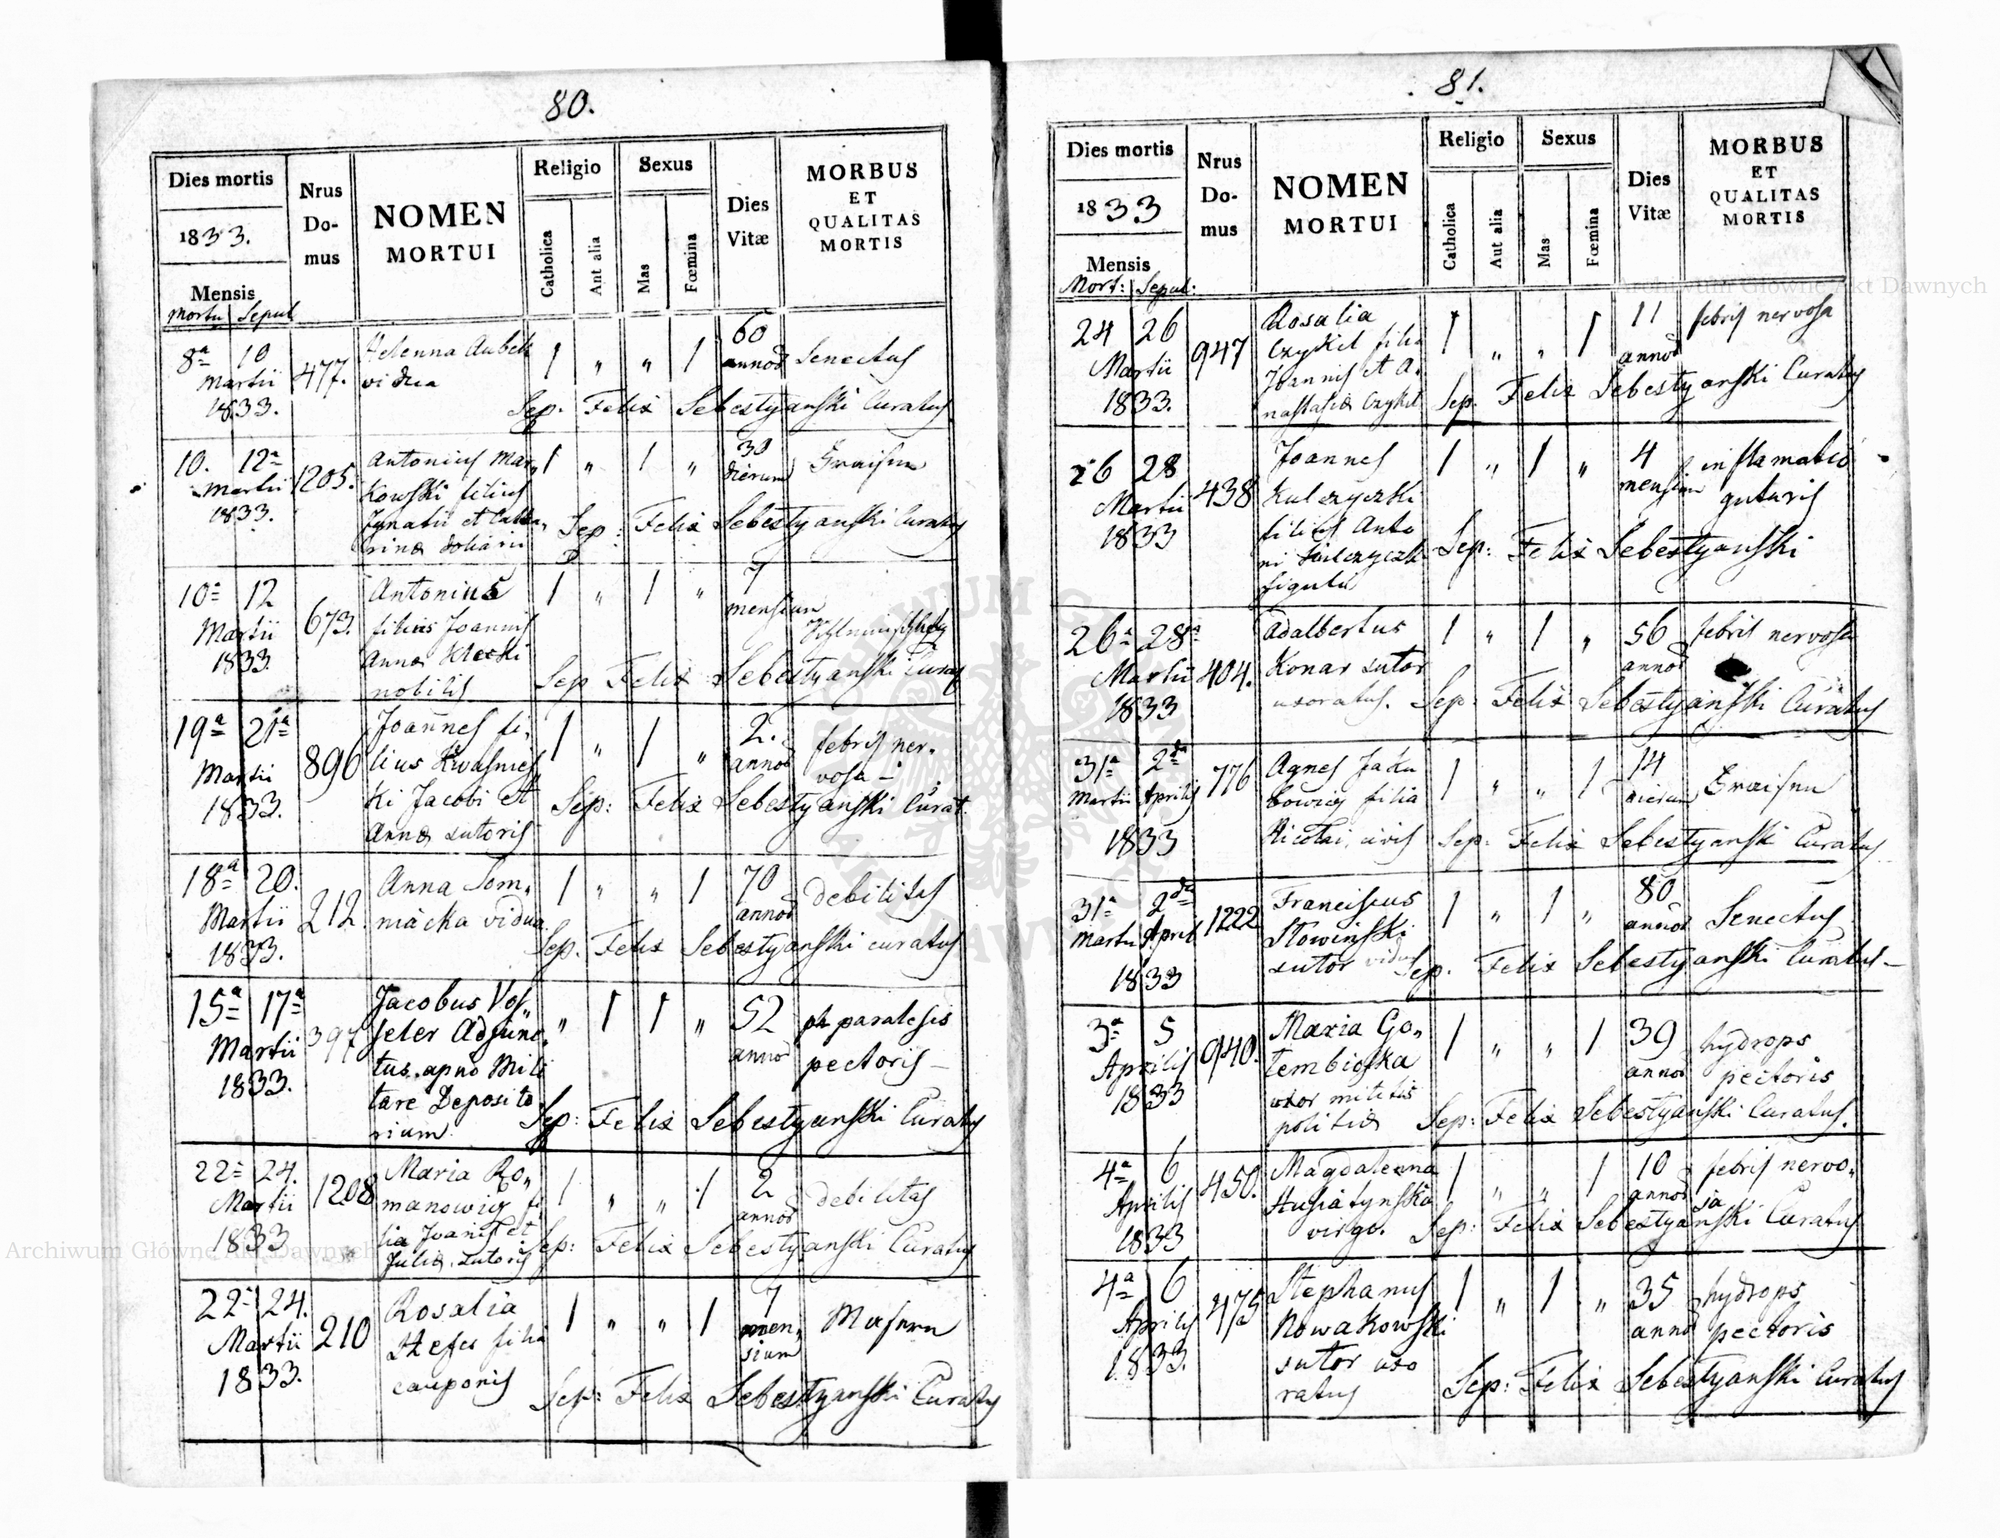 80.
Dies mortis
Nrus Domus
NOMEN MORTUI
Religio
Sexus
Dies Vitæ
MORBUS ET QUALITAS MORTIS
1833.
Catholica
Aut alia
Mas
Fœmina
Mensis
Mortu Sepul
8a 10 Martii 1833. 477. 1 " " 1 60 annor Senectus
Helenna
vidua
Sep: Felix Sebestyanski Curatus
10. 12a Martii 1833. 1205. 1 " 1 " dierum
Antonius Mar„
kowski filius
Ignatii et Catha„
rina doliarii
Sep: Felix Sebestyanski Curatus
10a 12 Martii 1833. 673. 1 " 1 " 7 mensium
Antonius
filius Joannis
Anna Klecki
nobilis
Sep Felix Sebestyanski Curat
19a 21a Martii 1833. 896 1 " 1 " 2. annor febris ner„
vosa –
Joannes fi„
lius Kwasnic„
ki Jacobi et
Anna sutoris
Sep: Felix Sebestyanski Curat.
18a 20. Martii 1833. 212. 1 " " 1 70 annor debilitas
Anna Tom„
nacka vidua
Sep. Felix Sebestyanski curatus
15a 17a Martii 1833. 397 " 1 1 " 52 annor paralesis
pectoris –
Jacobus Vos„
seler Adjunc„
tus apud Mili
tare Deposito
rium
Sep: Felix Sebestyanski Curatus
22a 24. Martii 1833 1208 1 " " 1 2 annor debilitas
Maria Ro„
manowicz fi
lia Joanis et
Julia. Sutoris
Sep: Felix Sebestyanski Curatus
22a 24. Martii 1833. 210 1 " " 1 7 men„
sium
Rosalia
filia
cauponis
Sep: Felix Sebestyanski Curatus
81.
Dies mortis
Nrus Domus
NOMEN MORTUI
Religio
Sexus
Dies Vitæ
MORBUS ET QUALITAS MORTIS
1833
Catholica
Aut alia
Mas
Fœmina
Mensis
Mort: Sepul:
24 26 Martii 1833. 947 1 " " 1 11 annor febris nervosa
Rosalia
Czykel filia
Joannis et A„
nastasia Czykel
Sep. Felix Sebestyanski Curatus
26 28 Martii 1833 438 1 " 1 " 4 mensium inflamatio
guturis
Joannes
Kulczyczki
filius Anto
ni Kulczyczki
figuli
Sep: Felix Sebestyanski
26a 28a Martii 1833 404. 1 " 1 " 56 annor febris nervosa
Adalbertus
Konar sutor
uxoratus.
Sep: Felix Sebestyanski Curatus
31a 2da Martii Aprilis 1833 776 1 " " 1 14 dierum
Agnes Jaku
bowicz filia
Nicolai, civis
Sep: Felix Sebestyanski Curatus
31a 2da Martii April 1833 1222 1 " 1 " 80 annor Senectus
Franciscus
Slowinski
sutor viduus
Sep. Felix Sebestyanski Curatus –
3a 5 Aprilis 1833 940. 1 " " 1 39 annor hydrops
pectoris
Maria Go„
lembioska
uxor militis
politia
Sep: Felix Sebestyanski Curatus.
4a 6 Aprilis 1833 450. 1 " " 1 10 annor febris nervo„
sa
Magdalenna
Husiatynska
virgo.
Sep: Felix Sebestyanski Curatus
4a 6 Aprilis 1833. 475 1 " 1 " 35 annor hydrops
pectoris
Stephanus
Nowakowski
sutor uxo
ratus
Sep: Felix Sebestyanski Curatus
Archiwum Główne Akt Dawnych
Archiwum Główne Akt Dawnych